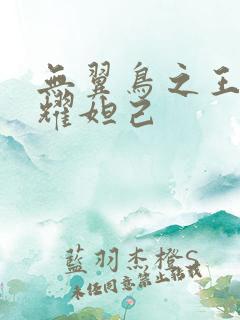 無翼鳥之王
耀妲己
藍羽杰橙S
未经同意禁止转载